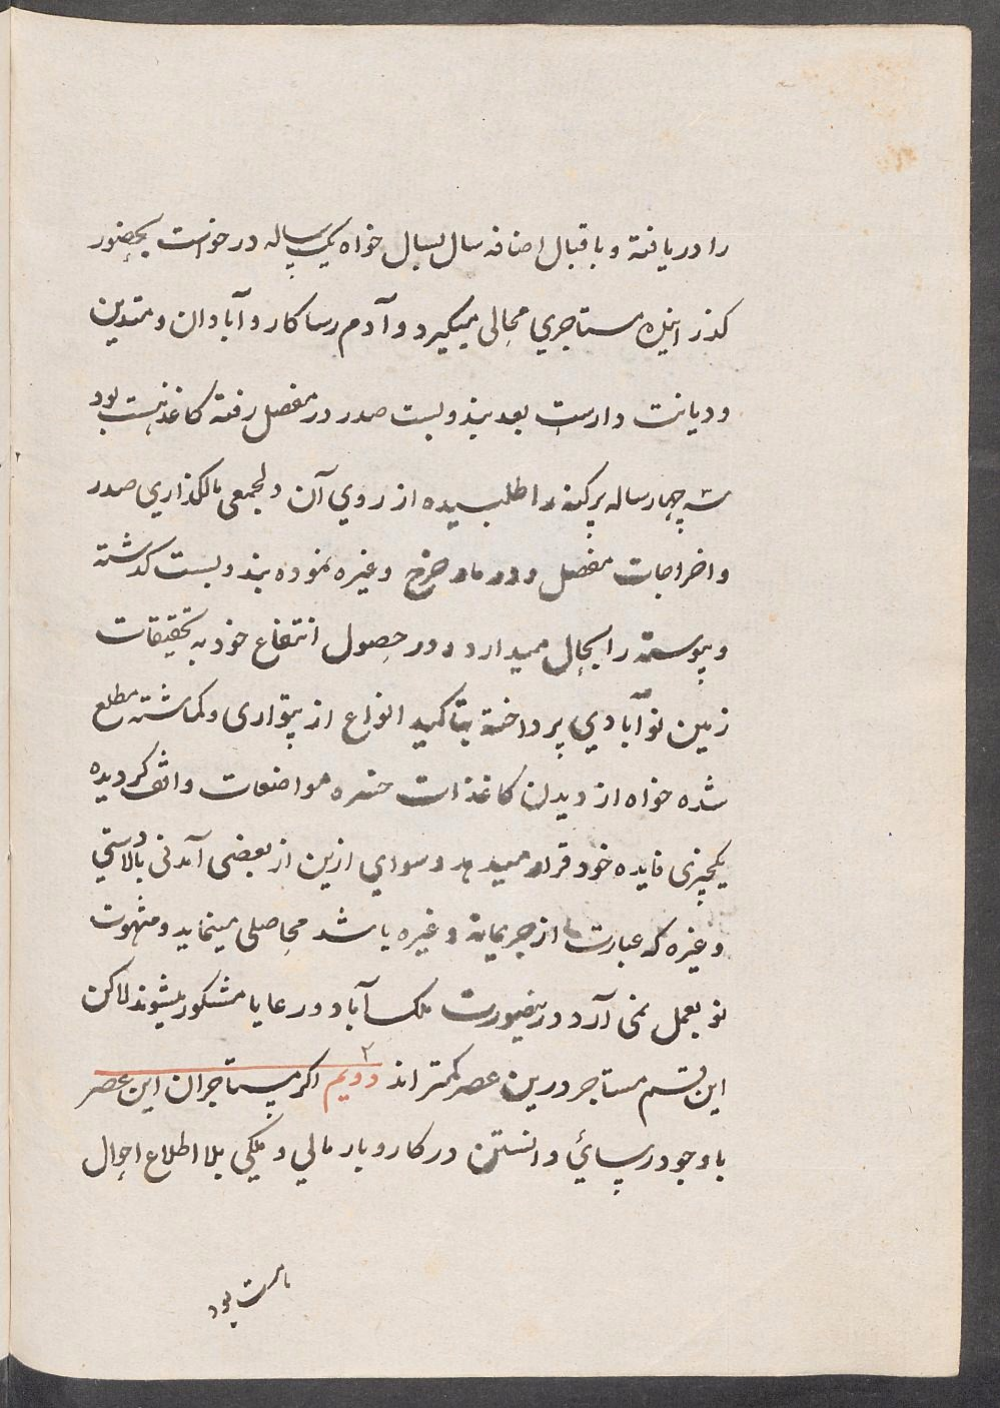 را دریافته و باقبال اضافه سال بسال خواه یک ساله درخواست بحضور
کذرانیده مستاجری محالی میکیرد و آدم رسا کار و آبادان و متدین
و دیانت دارست بعد بندوبست صدر در مفصل رفته کاغذ بست بود
سه چهار ساله پرکنه را طلبیده از روی آن دلجمعی مالکذاری صدر
و اخراجات مفصل و در ماه خرج وغیره نموده بندوبست کذشته
و پیوسته را بحال میدارد و در حصول انتفاع خود به تحقیقات
زمین نوآبادی پرداخته بتاکید انواع از پتواری و کماشته مطلع
شده خواه از دیدن کاغذات خسره مواضعات واقف کردیده
یکچیزی فایده خود قرار میدهد و سوای ازین از بعضی آمدنی بالادستی
وغیره که عبارت از جریمانه وغیره باشد محاصلی مینماید و
نو بعمل نمی آرد درینصورت ملک آباد و رعایا مشکور میشوند لاکن
این قسم مستاجر درین عصر کمتر اند دویم ۲ اکثر مستاجران این عصر
باوجود رسائی دانستن در کاروبار مالی و ملکی بلا اطلاع احوال
بست بود